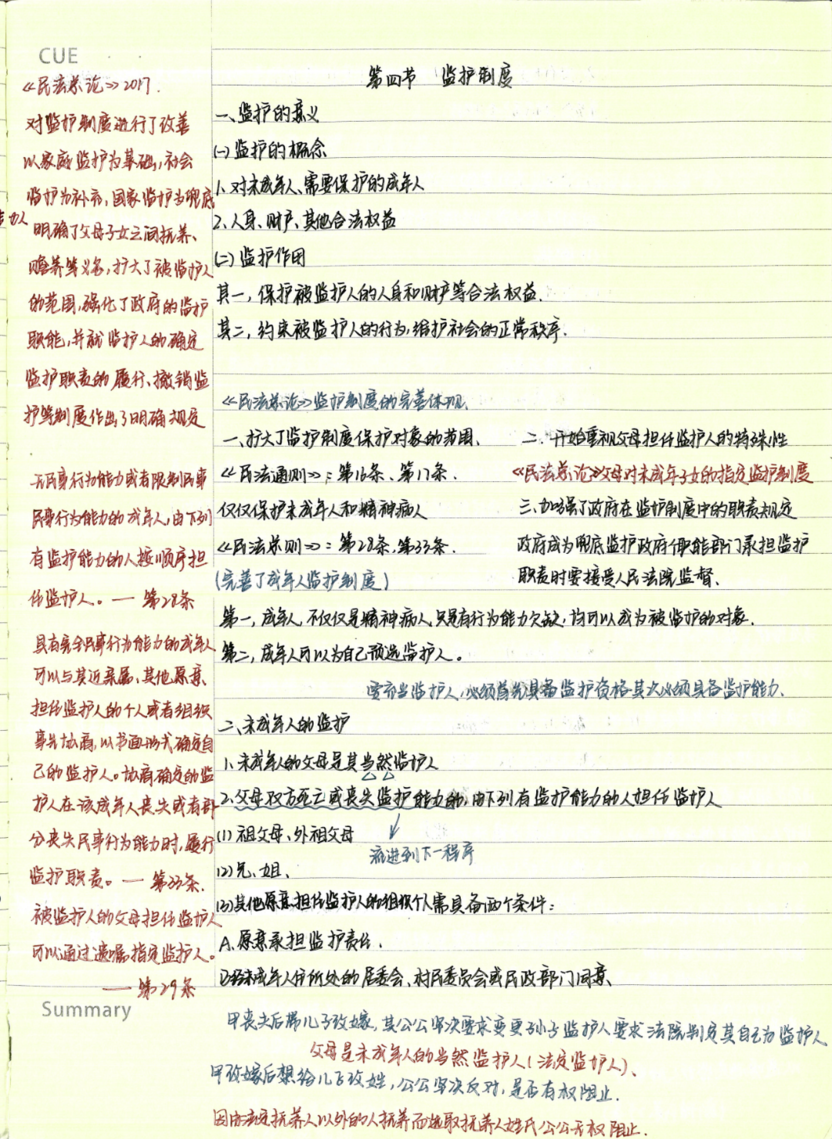 CUE
《民法总论》2017.
对监护制度进行了改善
以家庭监护为基础,社会
监护为补充,国家监护为兜底
明确了父母子女之间抚养、
赡养等义务,扩大了被监护人
的范围,强化了政府的监护
职能,并就监护人的确定
监护职责的履行、撤销监
护等制度作出了明确规定
无民事行为能力或者限制民事
民事行为能力的成年人,由下列
有监护能力的人按顺序担
任监护人。— 第28条
具有完全民事行为能力的成年人
可以与其近亲属、其他愿意
担任监护人的个人或者组织
事先协商,以书面形式确定自
己的监护人。协商确定的监
护人在该成年人丧失或者部
分丧失民事行为能力时,履行
监护职责。— 第33条.
被监护人的父母担任监护人
可以通过遗嘱指定监护人。
— 第29条
第四节 监护制度
一、监护的意义
(一)监护的概念
1.对未成年人、需要保护的成年人
2.人身、财产、其他合法权益
(二)监护作用
其一,保护被监护人的人身和财产等合法权益.
其二,约束被监护人的行为,维护社会的正常秩序.
《民法总论》监护制度的完善体现.
一、扩大了监护制度保护对象的范围.
《民法通则》:第16条、第17条.
仅仅保护未成年人和精神病人
《民法总则》:第28条,第33条.
(完善了成年人监护制度)
二、开始重视父母担任监护人的特殊性
《民法总论》父母对未成年子女的指定监护制度
三.加强了政府在监护制度中的职责规定
政府成为兜底监护政府职能部门承担监护
职责时要接受人民法院监督.
第一,成年人,不仅仅是精神病人,只要有行为能力欠缺,均可以成为被监护的对象.
第二,成年人可以为自己预选监护人。
要充当监护人,必须首先具备监护资格其次必须具备监护能力.
二、未成年人的监护
1.未成年人的父母是其当然监护人
2.父母双方死亡或丧失监护能力的,由下列有监护能力的人担任监护人
(1)祖父母、外祖父母
流进到下一程序
(2)兄、姐、
(3)其他愿意担任监护人的组织个人需具备两个条件:
A.愿意承担监护责任.
B.经未成年人住所处的居委会、村民委员会或民政部门同意.
Summary
甲丧夫后携儿子改嫁,其公公坚决要求变更孙子监护人要求法院判定其自己为监护人
父母是未成年人的当然监护人(法定监护人)、
甲改嫁后想给儿子改姓,公公坚决反对,是否有权阻止.
因由法定抚养人以外的人抚养而选取抚养人姓氏公公无权阻止.